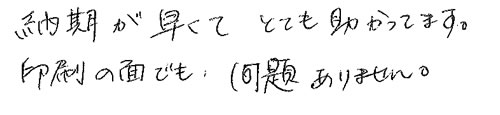 納期が早くて とても助かってます。
印刷の面でも、問題ありません。